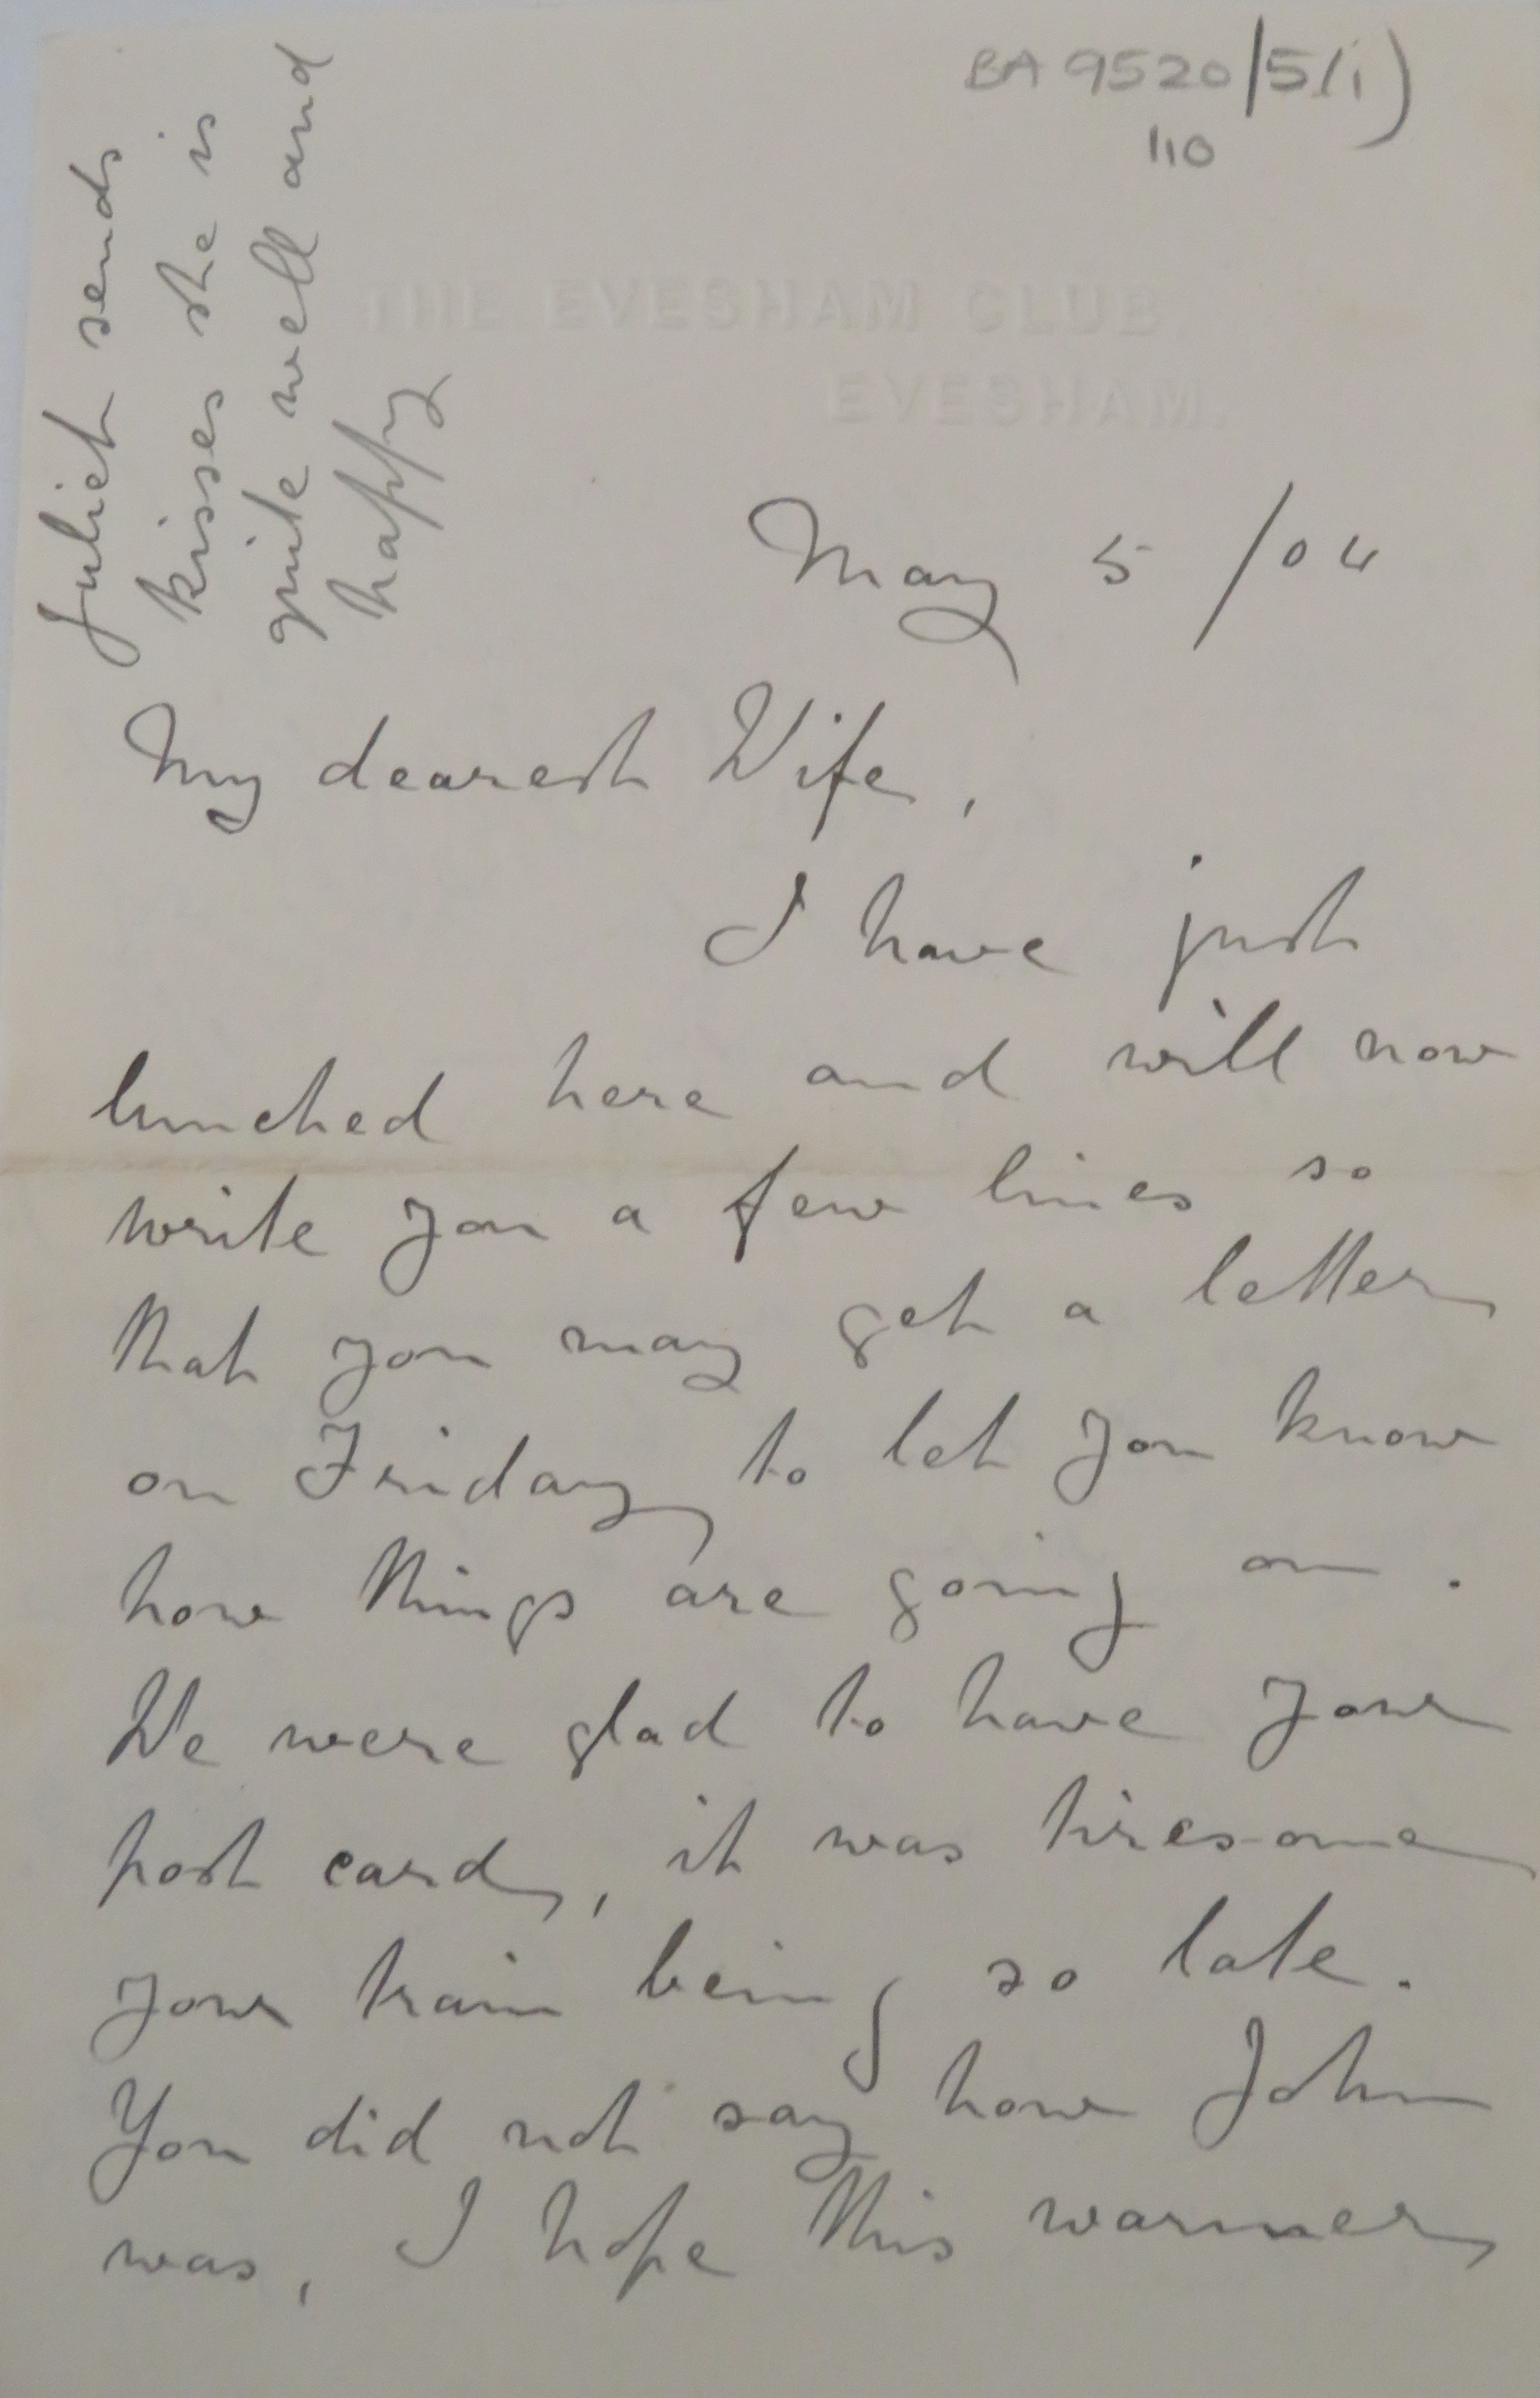 BA 9520/5(i)
110
Juliet sends
kisses she is
quite well and
happy
THE EVESHAM CLUB.
EVESHAM.
May 5 /04
My dearest Wife,
I have just
lunched here and will now
write you a few lines so
that you may get a letter
on Friday to let you know
how things are going on.
We were glad to have your
post card, it was tiresome
your train being so late.
You did not say how John
was, I hope this warmer